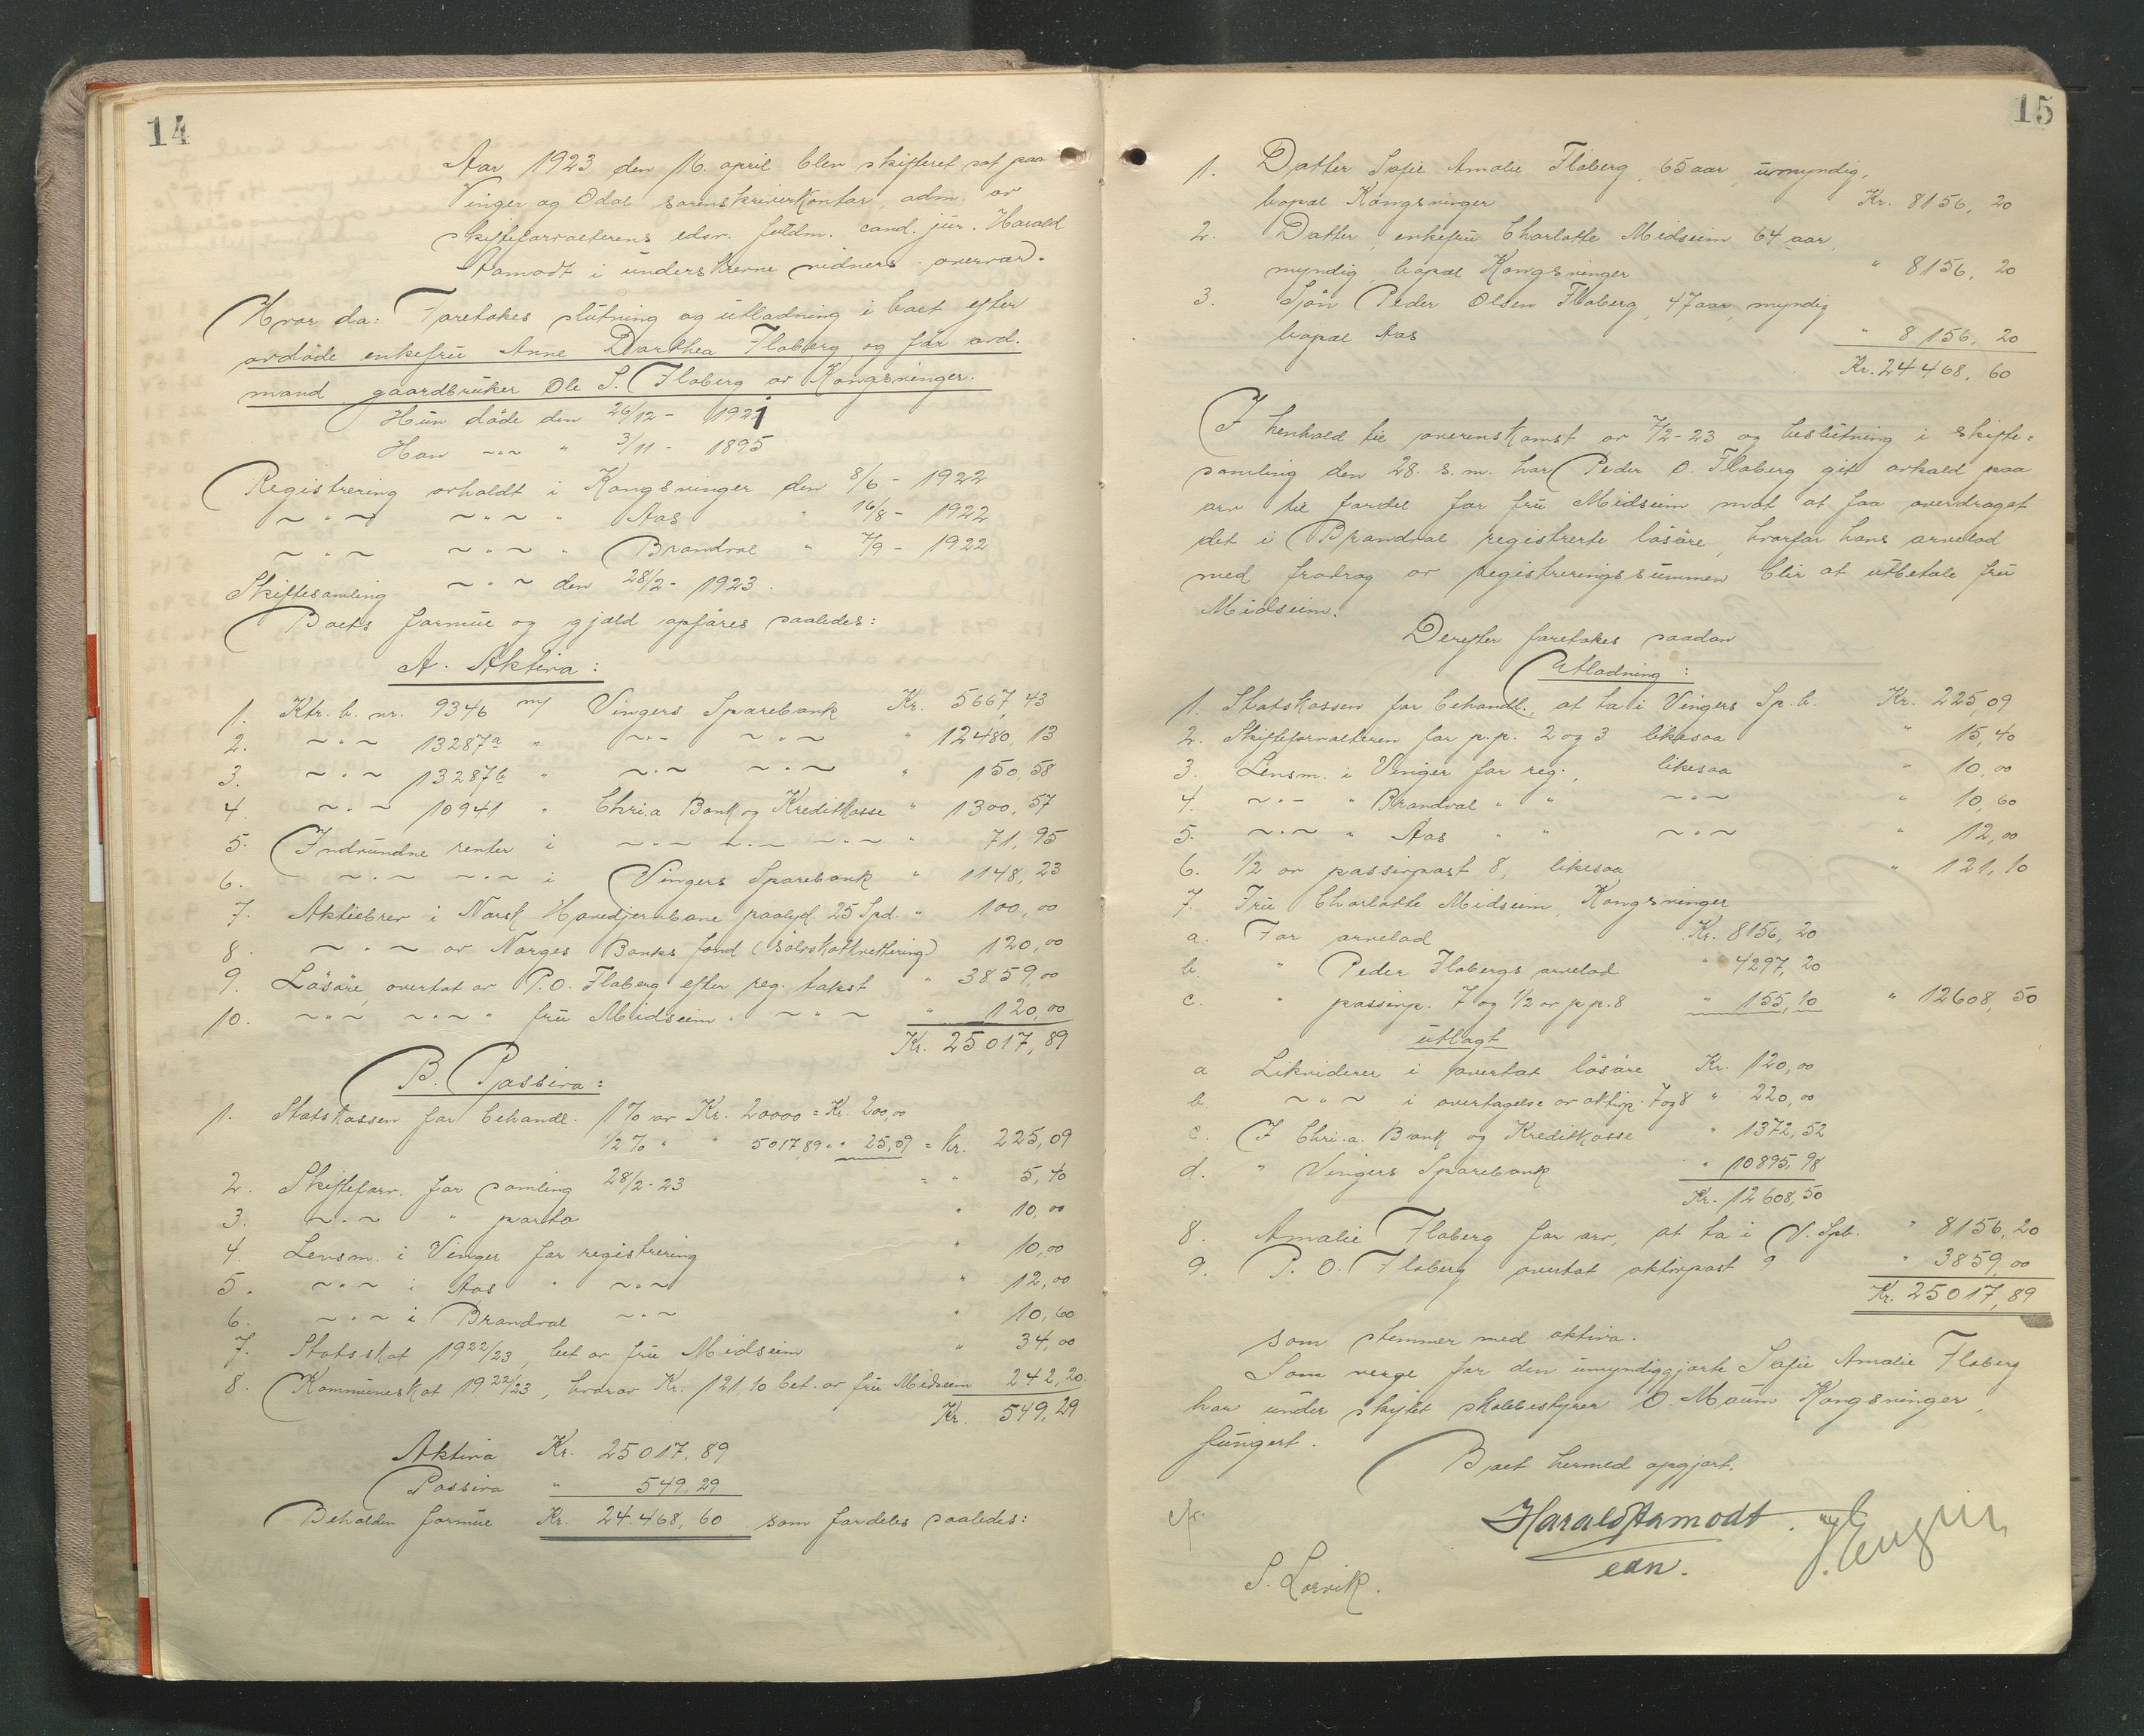 14
Aar 1923 den 16. april blev skifteret sat paa
Vinger og Odal sorenskriverkontor, adm. av
skifteforvalterens edsv. fuldm. cand. jur. Harald
Aamodt i underskrevne vidners overvær.
Hvor da: Foretokes slutning og utlodning i boet efter
avdöde enkefru Anne Dorthea Floberg og för avd.
mand gaardbruker Ole S. Floberg av Kongsvinger.
Hun döde den 26/12 - 1921
Han ~"~ " 3/11 - 1895
Registrering avholdt i Kongsvinger den 8/6 - 1922
~ " ~ ~ " ~ " Aas " 16/8 - 1922
~ " ~ ~ " ~ " Brandval " 7/9 - 1922
Skiftesamling ~ " ~ den 28/2 - 1923.
Boets formue og gjæld opföres saaledes:
A. Aktiva:
1. Ktr. b. nr. 9346 m/ Vingers Sparebank Kr. 5667,43
2. ~ " ~ 13287a " ~ " ~ ~ " ~ " 12480,13
3. ~ " ~ 13287b " ~ " ~ ~ " ~ " 150,58
4. ~ " ~ 10941 " Chri.a Bank og Kreditkasse " 1300,57
5. Indvundne renter i ~ " ~ ~ " ~ ~ " ~ " 71,95
6. ~ " ~ ~ " ~ i Vingers Sparebank " 1148,23
7. Aktiebrev i Norsk Hovedjernbane paalyd. 25 Spd. " 100,00
8. ~ " ~ av Norges Banks fond (sölvskatkvittering) 120,00
9. Lösöre, overtat av P.O. Floberg efter reg. takst " 3859,00
10. ~ " ~ ~ " ~ " fru Midseim " ~ " ~ " 120,00
Kr. 25017,89
B. Passiva:
1. Statskassen for behandl. 1% av Kr. 20000 = Kr. 200,00
1/2 % " " 5017,89 = " 25,09 = Kr. 225,09
2. Skifteforv. for samling 28/2-23 = " 5,40
3. ~ " ~ " porto " 10,00
4. Lensm. i Vinger for registrering " 10,00
5. ~ " ~ i Aas " ~ " ~ " 12,00
6. ~ " ~ i Brandval ~ " ~ " 10,60
7. Statsskat 1922/23, bet. av fru Midseim " 34,00
8. Kommuneskat 1922/23, hvorav Kr. 121,10 bet. av fru Midseim 242,20
Kr. 549,29
Aktiva Kr. 25017,89
Passiva " 549,29
Beholden formue Kr. 24.468,60 som fordeles saaledes:
15
1. Datter Sofie Amalie Floberg, 65 aar, umyndig,
bopæl Kongsvinger Kr. 8156,20
2. Datter, enkefru Charlotte Midseim 64 aar,
myndig, bopæl Kongsvinger " 8156,20
3. Sön Peder Olsen Floberg, 47 aar, myndig
bopæl Aas " 8156,20
Kr. 24468,60
I henhold til overenskomst av 7/2-23 og beslutning i skifte=
samling den 28. s.m. har Peder O. Floberg git avkald paa
arv til fordel for fru Midseim mot at faa overdraget
det i Brandval registrerte lösöre, hvorfor hans arvelod
med fradrag av registreringssummen blir at utbetale fru
Midseim.
Derefter foretokes saadan
Utlodning:
1. Statskassen for behandl., at ta i Vingers Sp.b. Kr. 225,09
2. Skifteforvalteren for p.p. 2 og 3 likesaa " 15,40
3. Lensm. i Vinger for reg., likesaa " 10,00
4. ~ " ~ " Brandval " " ~ " ~ " 10,60
5. ~ " ~ " Aas " " ~ " ~ " 12,00
6. 1/2 av passivpost 8, likesaa " 121,10
7. Fru Charlotte Midseim, Kongsvinger
a. For arvelod Kr. 8156,20
b. " Peder Flobergs arvelod " 4297,20
c. " passivp. 7 og 1/2 av p.p. 8 " 155,10 " 12608,50
utlagt
a Likviderer i overtat lösöre Kr. 120,00
b. ~ " ~ i overtagelse av aktivp. 7 og 8 " 220,00
c. I Chri.a. Bank og Kreditkasse " 1372,52
d. " Vingers Sparebank " 10895,98
Kr. 12608,50
8. Amalie Floberg for arv, at ta i V. Spb. " 8156,20
9. P. O. Floberg overtat aktivpost 9 " 3859,00
Kr. 25017,89
som stemmer med aktiva.
Som verge for den umyndiggjorte Sofie Amalie Floberg
har under skiftet skolebestyrer O. Maum Kongsvinger,
fungert.
Boet hermed opgjort.
Harald Aamodt
edn.
S. Lorvik.